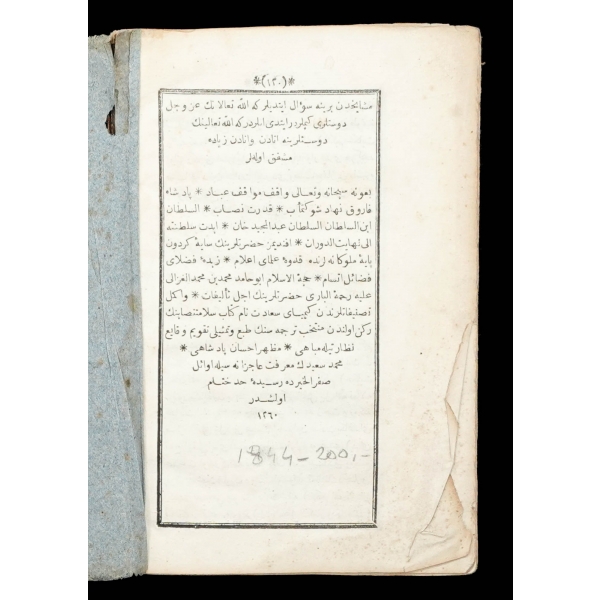 *(١٣٠)*
مشایخدن برینه سؤال ایتدیلر که الله تعالانك عز وجل
دوستلری کیملردر ایتدی آنلردر که الله تعالینك
دوستلرینه آتادن وآنادن زیاده
مشفق اوله لر
بعونه سبحانه وتعالی واقف مواقف عباد * پادشاه
فاروق نهاد شوکتمآب * قدرت نصاب * السلطان
ابن السلطان السلطان عبدالمجید خان * ابدت سلطنته
الی نهایت الدوران * افندیمز حضرتلرینك سایهٔ کردون
پایهٔ ملوکانه لرنده قدوهٔ علمای اعلام * زبدهٔ فضلای
فضائل اتسام * حجة الاسلام ابو حامد محمد بن محمد الغزالی
علیه رحمة الباری حضرتلرینك اجل تألیفات * واکمل
تصنیفاتلرندن کیمیای سعادت نام کتاب سلامتنصابنك
رکن اولندن منتخب ترجمه سنك طبع وتمثیلی تقویم وقایع
نظارتیله مباهی * مظهر احسان پادشاهی *
محمد سعیدك معرفت عاجزانه سیله اوائل
صفر الخیرده رسیدهٔ حد ختام
اولمشدر
١٢٦٠
1844 - 200,-